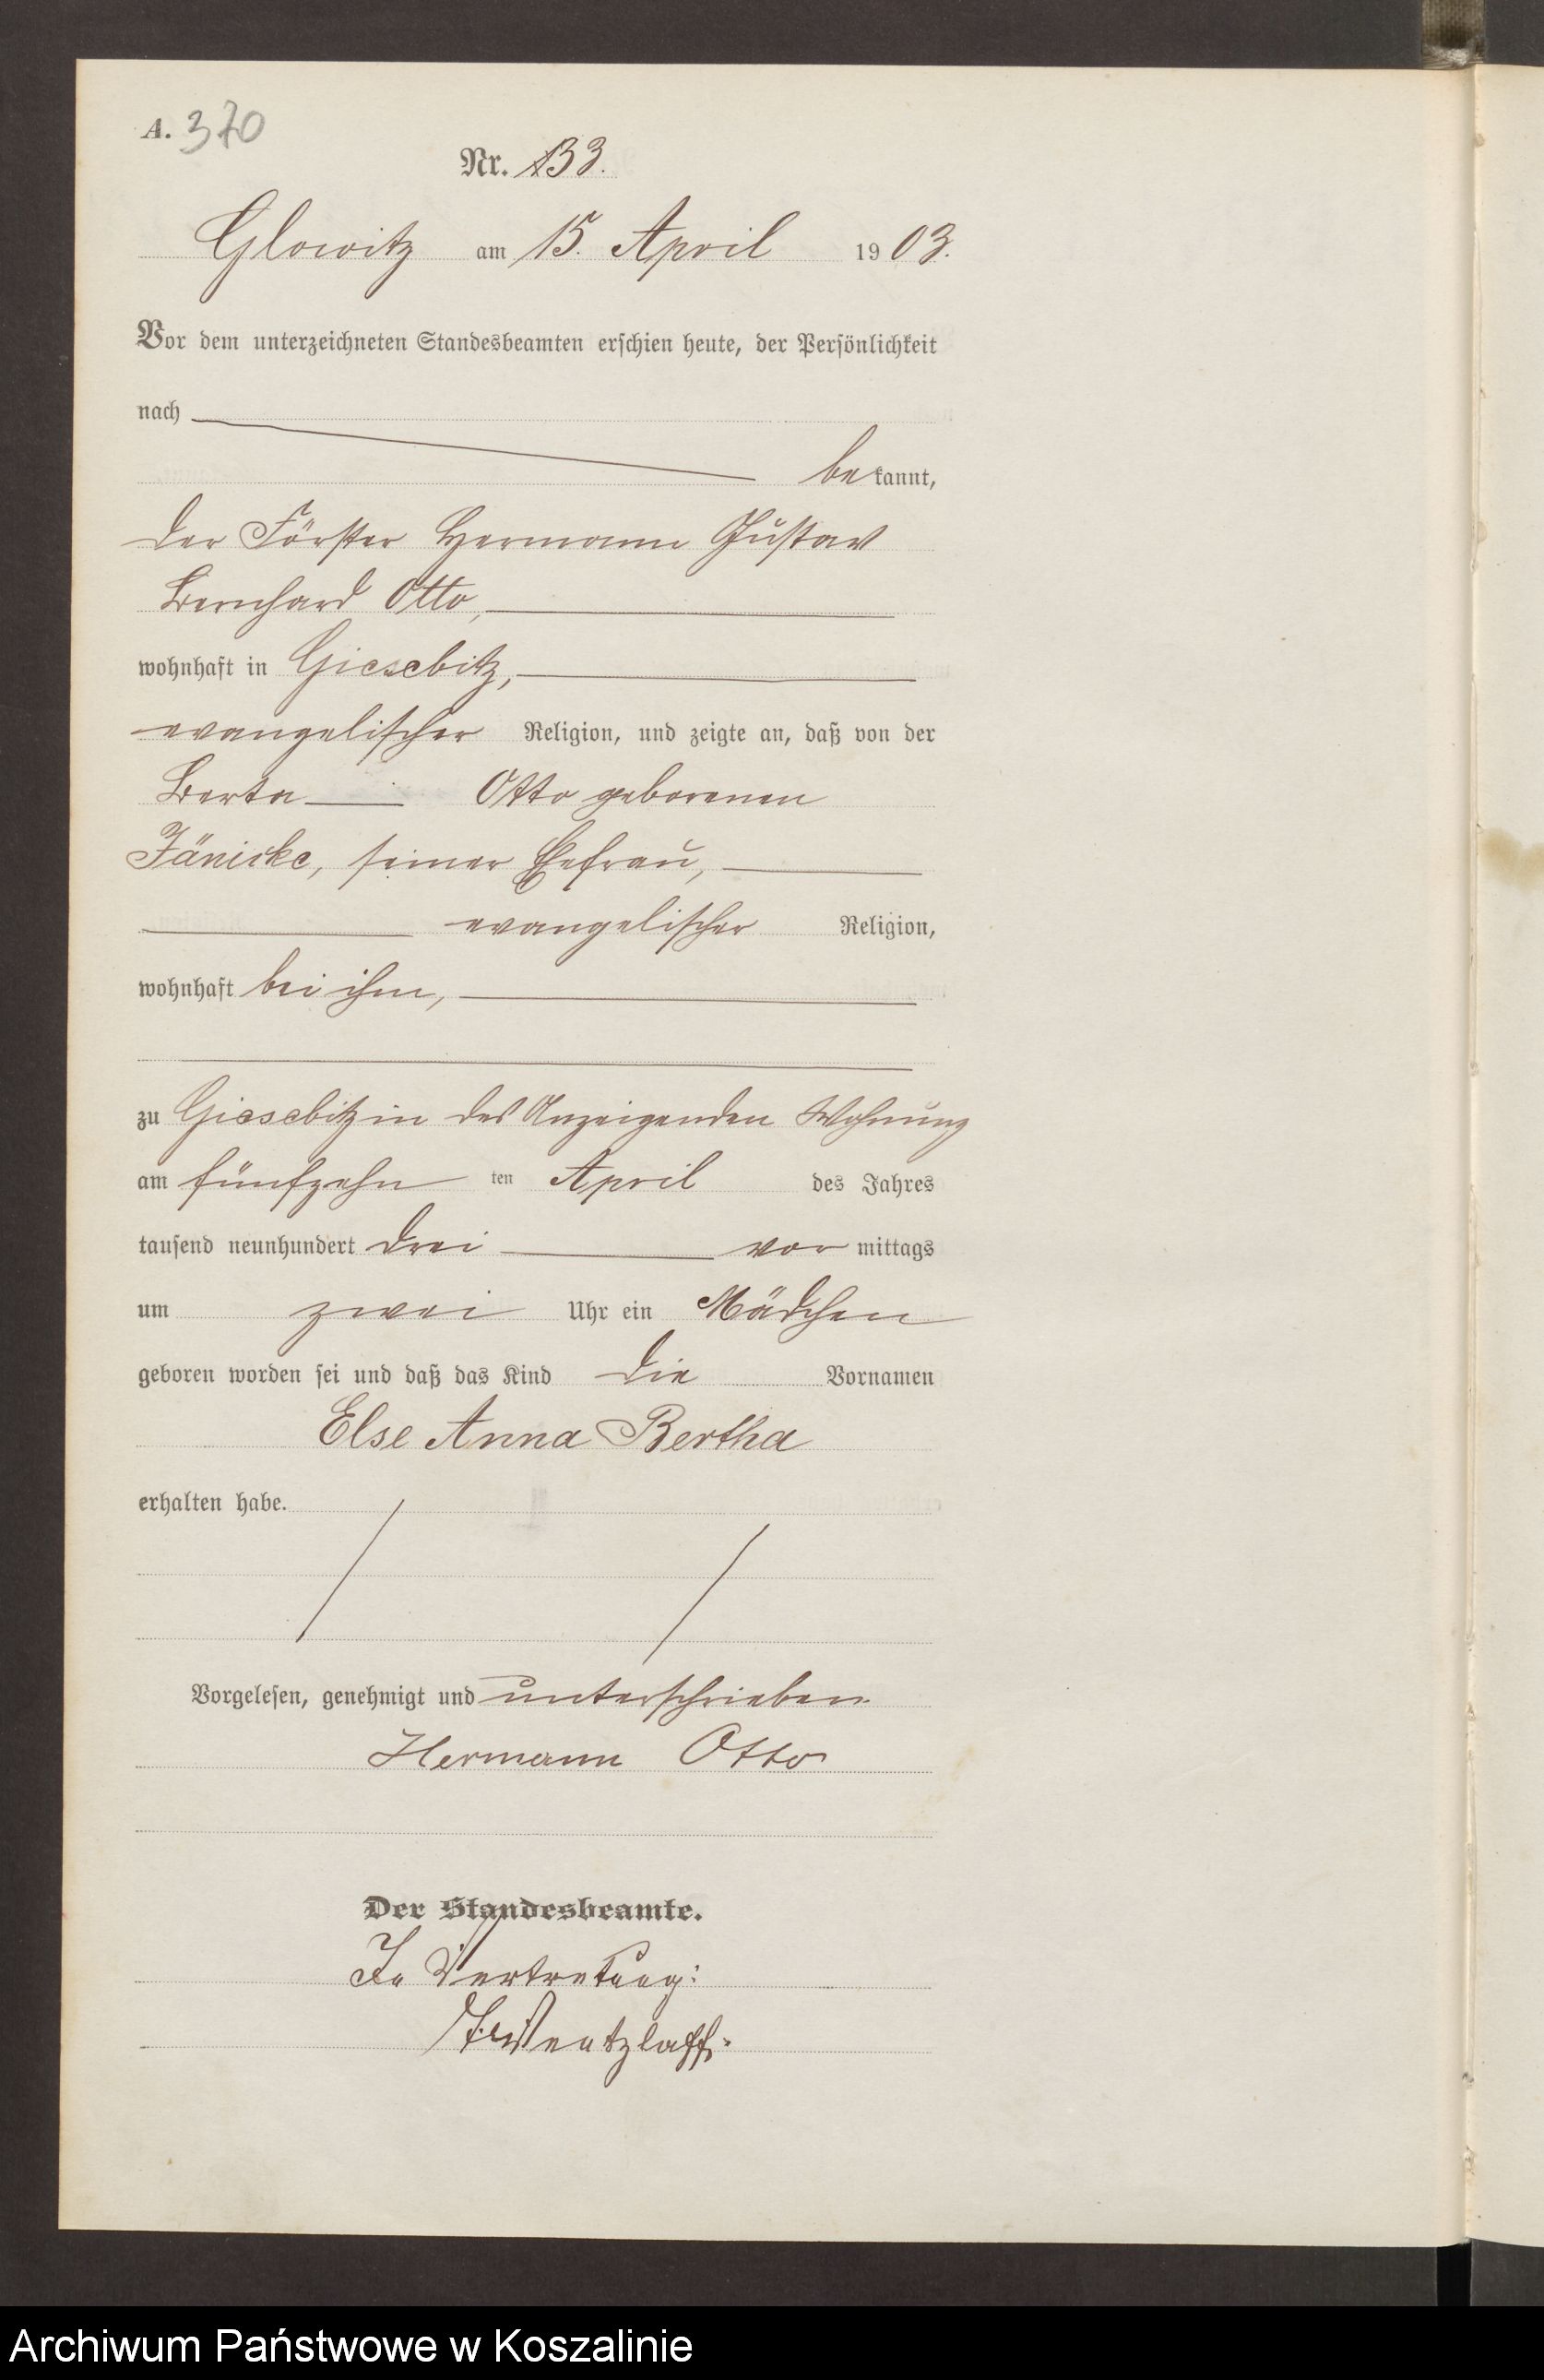 A. 370
Nr. 133.
Glowitz am 15. April 1903.
Vor dem unterzeichneten Standesbeamten erschien heute, der Persönlichkeit
nach
bekannt,
der Förster Hermann Gustav
Bernhard Otto,
wohnhaft in Giesebitz,
evangelischer Religion, und zeigte an, daß von der
Berta Otto geborenen
Jänicke, seiner Ehefrau,
evangelischer Religion,
wohnhaft bei ihm,
zu Giesebitz in des Anzeigenden Wohnung
am fünfzehnten April des Jahres
tausend neunhundert drei vormittags
um zwei Uhr ein Mädchen
geboren worden sei und daß das Kind die Vornamen
Else Anna Bertha
erhalten habe.
Vorgelesen, genehmigt und unterschrieben
Hermann Otto
Der Standesbeamte.
In Vertretung:
Wentzlaff.
Archiwum Państwowe w Koszalinie